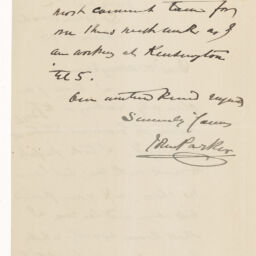 most convenient time for
me this next week as I
am working at Kensington
till 5.
With kind regards
Sincerely Yours
John Parker